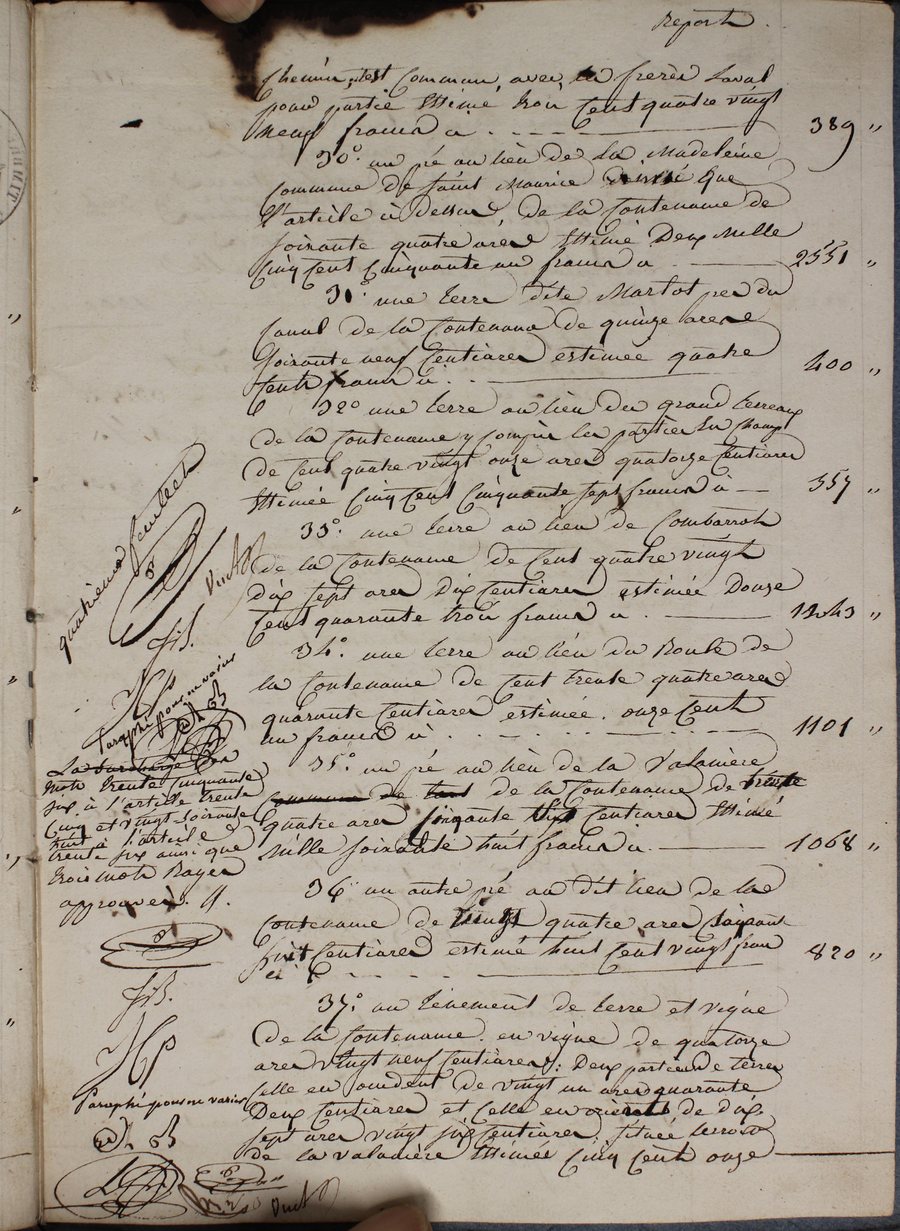 Report
chemin est commun avec les freres Laval
pour partie Estimé trois Cent quatre vingt
neuf francs ci 389 "
30° un pré au lieu de La Madeleine
commune de Saint Maurice que
l'article ci dessus de la Contenance de
soixante quatre ares Estimé Deux Mille
Cinq Cent Cinquante un francs ci 2551 "
31° une terre dite Martot pres du
Canal de la Contenance de quinze ares
Soixante neuf Centiares estimée quatre
Cents francs ci 400 "
32° une terre au lieu des grand terreaux
de la Contenance y compris les parties En Champ
de Cent quatre vingt onze ares quatorze Centiares
Estimée Cinq Cent Cinquante sept francs ci 557 "
33° une terre au lieu de Combarrot
de la Contenance de Cent quatre vingt
dix sept ares Dix Centiares estimée Douze
Cent quarante trois francs ci 1243 "
34° une terre au lieu du Roule de
la Contenance de Cent trente quatre ares
quarante Centiares estimée onze Cent
un francs ci 1101 "
35° un pré au lieu de la Valanière
commune de tout de la Contenance de trente
quatre ares Cinquante six Centiares Estimé
Mille soixante huit francs ci 1068 "
36° un autre pré au dit lieu de la
Contenance de vingt quatre ares soixante
huit Centiares estimé huit Cent vingt francs
ci 820 "
37° un tènement de terre et vigne
de la Contenance en vigne de quatorze
ares vingt neuf Centiares; Deux parties de terre
Celle en occident de vingt un ares quarante
Deux Centiares et Celle en orient de dix
sept ares vingt six Centiares, située
de la Valanière Estimées Cinq Cent onze
quatrième feuillet
Paraphé pour ne varier
La surcharge des
mots trente Cinquante
six à l'article trente
Cinq et vingt soixante
huit à l'article
trente six ainsi que
trois mots Rayer
approuvés.
Paraphé pour ne varier